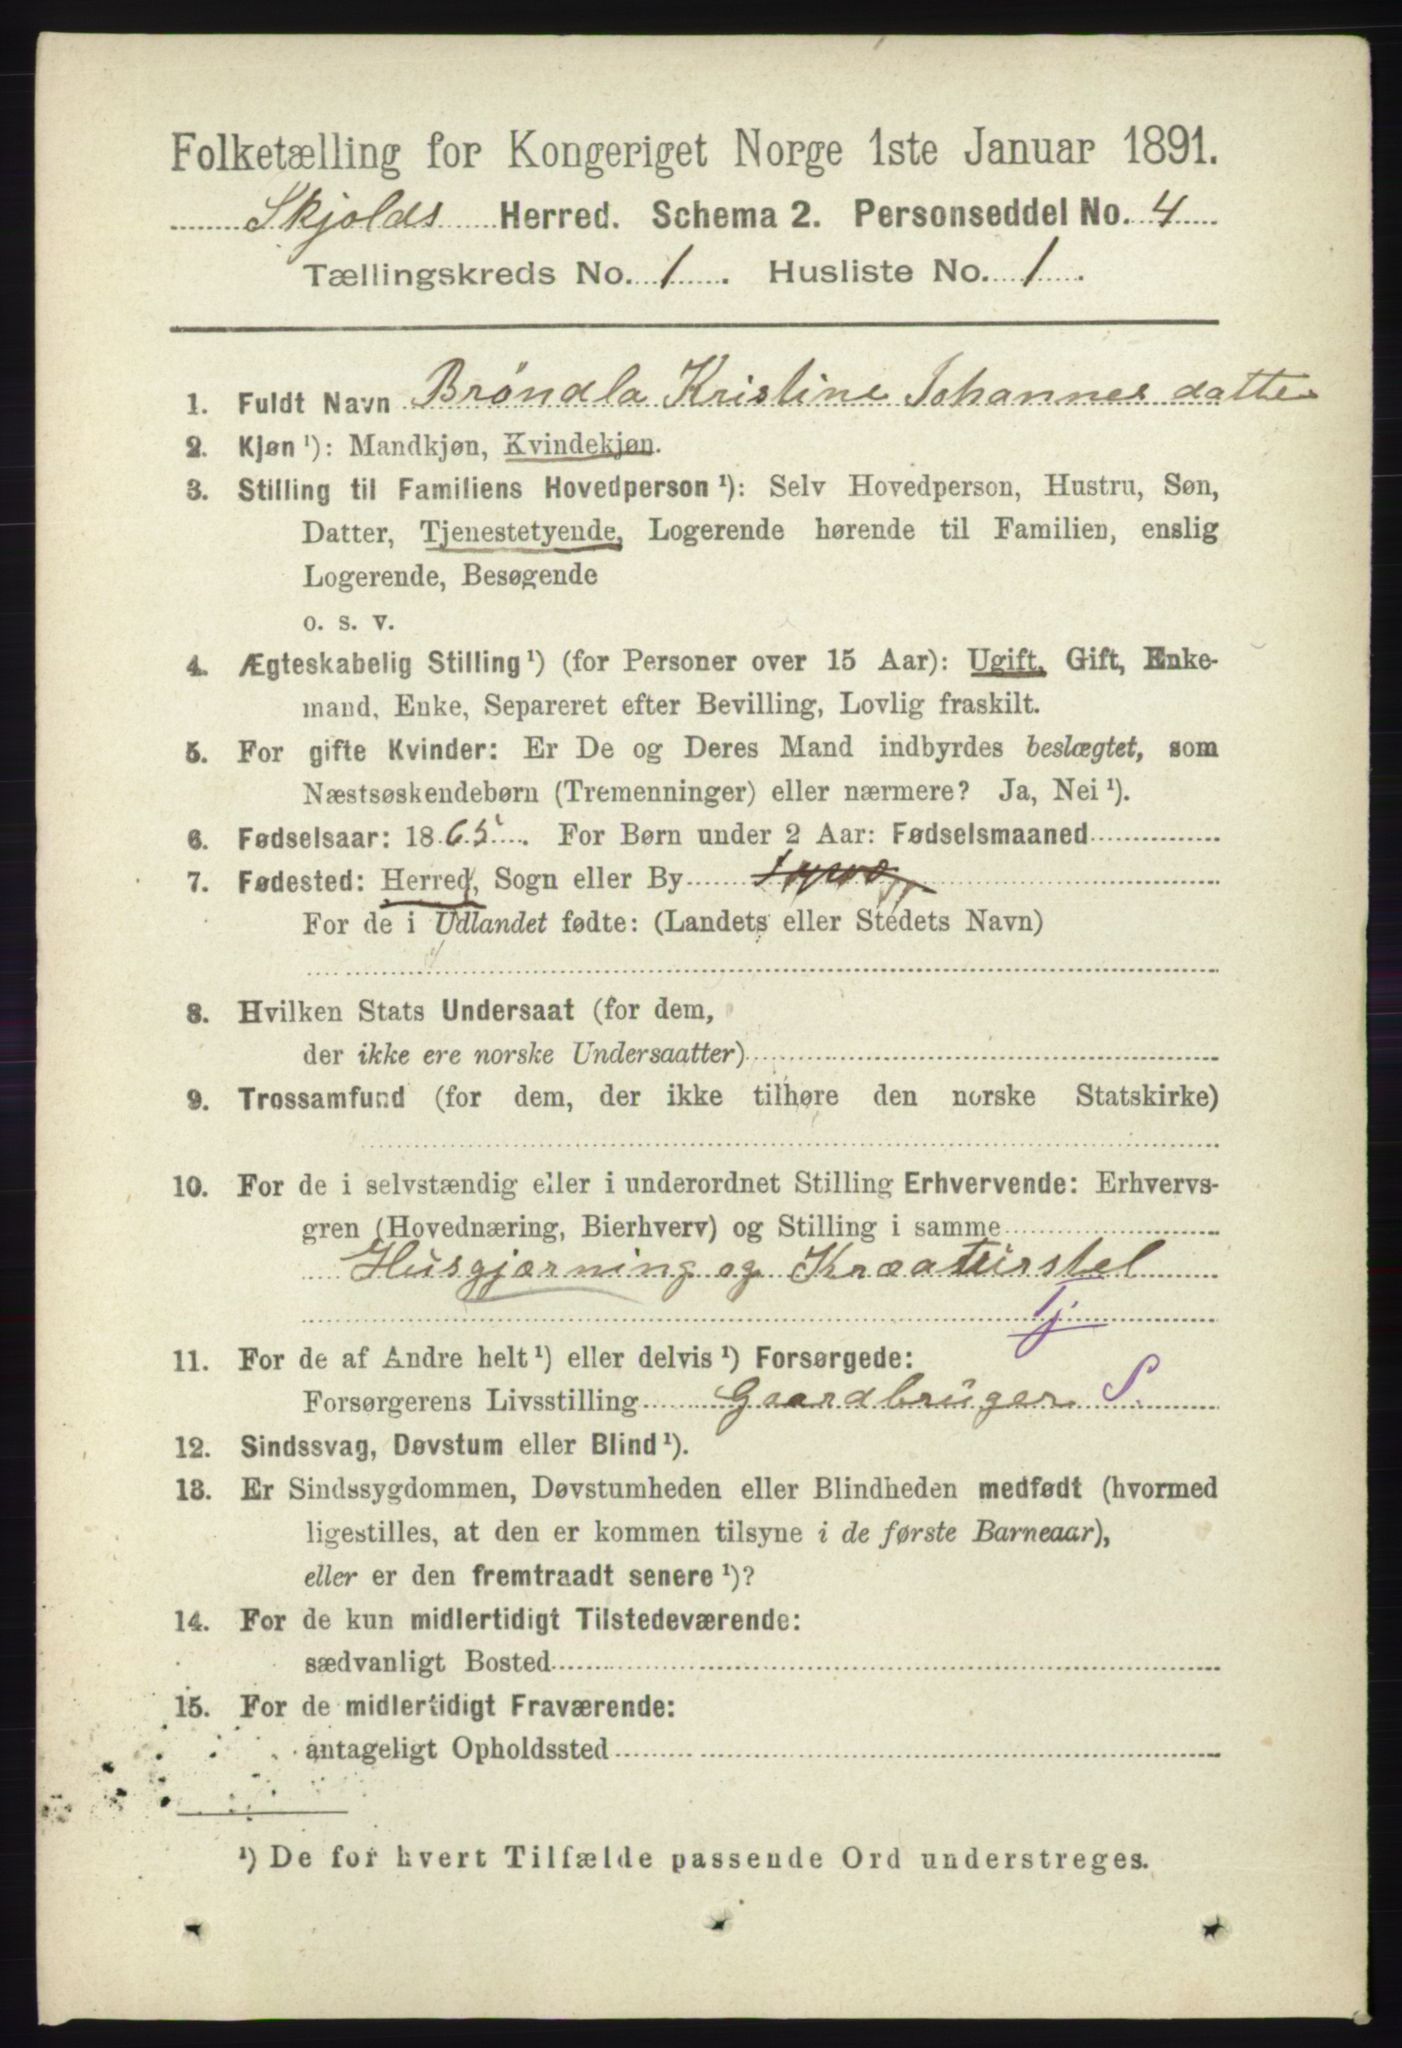 Folketælling for Kongeriget Norge 1ste Januar 1891.
Skjolds Herred. Schema 2. Personseddel No. 4
Tællingskreds No. 1. Husliste No. 1.
1. Fuldt Navn Bröndla Kristine Johannesdatter
2. Kjøn ¹): Mandkjøn, Kvindekjøn.
3. Stilling til Familiens Hovedperson ¹): Selv Hovedperson, Hustru, Søn,
Datter, Tjenestetyende, Logerende hørende til Familien, enslig
Logerende, Besøgende
o. s. v.
4. Ægteskabelig Stilling ¹) (for Personer over 15 Aar): Ugift, Gift, Enke-
mand, Enke, Separeret efter Bevilling, Lovlig fraskilt.
5. For gifte Kvinder: Er De og Deres Mand indbyrdes beslægtet, som
Næstsøskendebørn (Tremenninger) eller nærmere? Ja, Nei ¹).
6. Fødselsaar: 1865. For Børn under 2 Aar: Fødselsmaaned
7. Fødested: Herred, Sogn eller By
For de i Udlandet fødte: (Landets eller Stedets Navn)
8. Hvilken Stats Undersaat (for dem,
der ikke ere norske Undersaatter)
9. Trossamfund (for dem, der ikke tilhøre den norske Statskirke)
10. For de i selvstændig eller i underordnet Stilling Erhvervende: Erhvervs-
gren (Hovednæring, Bierhverv) og Stilling i samme
Husgjærning og Kræaturstel
Tj
11. For de af Andre helt ¹) eller delvis ¹) Forsørgede:
Forsørgerens Livsstilling Gaardbrüger S.
12. Sindssvag, Døvstum eller Blind ¹).
13. Er Sindssygdommen, Døvstumheden eller Blindheden medfødt (hvormed
ligestilles, at den er kommen tilsyne i de første Barneaar),
eller er den fremtraadt senere ¹)?
14. For de kun midlertidigt Tilstedeværende:
sædvanligt Bosted
15. For de midlertidigt Fraværende:
antageligt Opholdssted
¹) De for hvert Tilfælde passende Ord understreges.